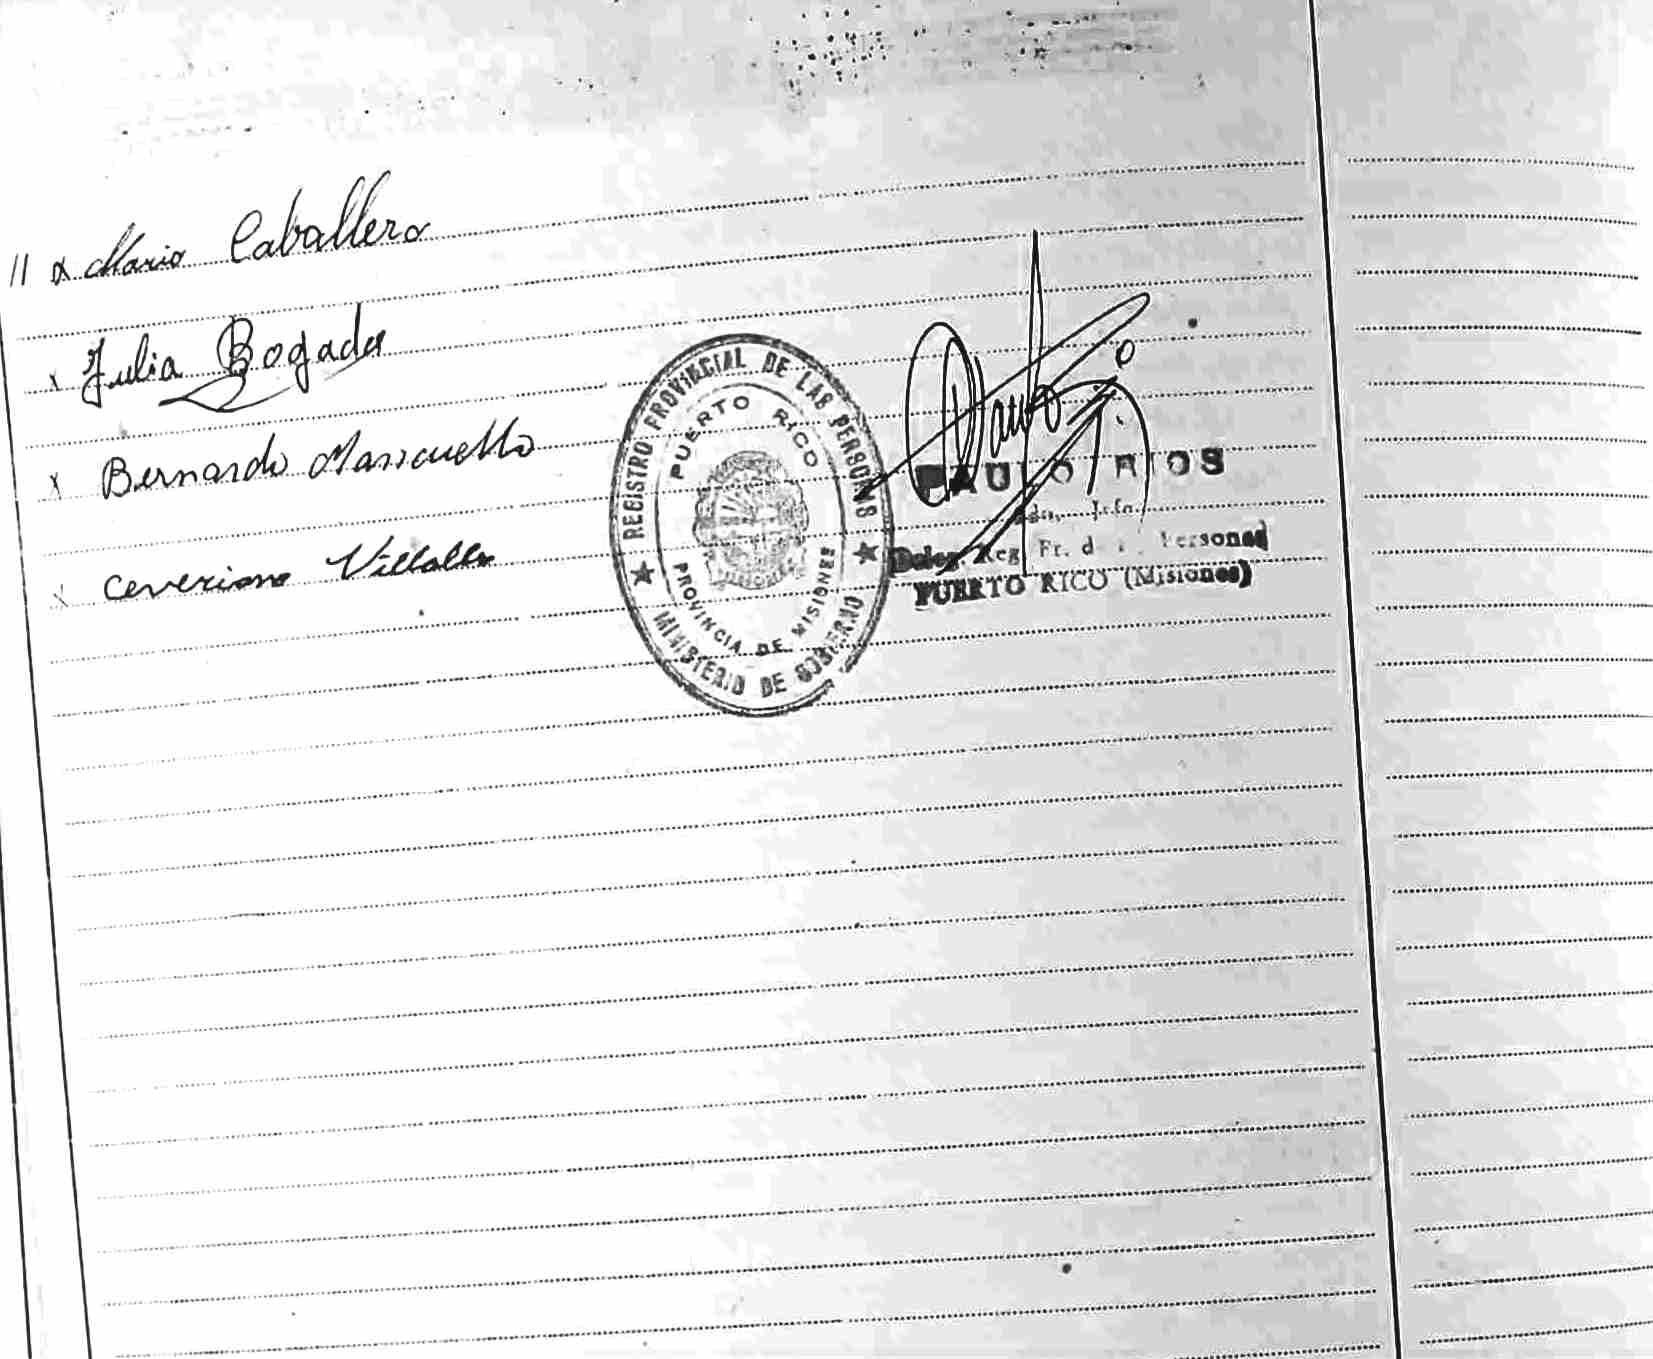 // x Mario Caballero
x Julia Bogado
x Bernardo
x Ceveriano Villalba
REGISTRO PROVINCIAL DE LAS PERSONAS
PUERTO RICO
PROVINCIA DE MISIONES
MINISTERIO DE GOBIERNO
PAULO RIOS
Deleg. Reg. Pr. d Personas
PUERTO RICO (Misiones)